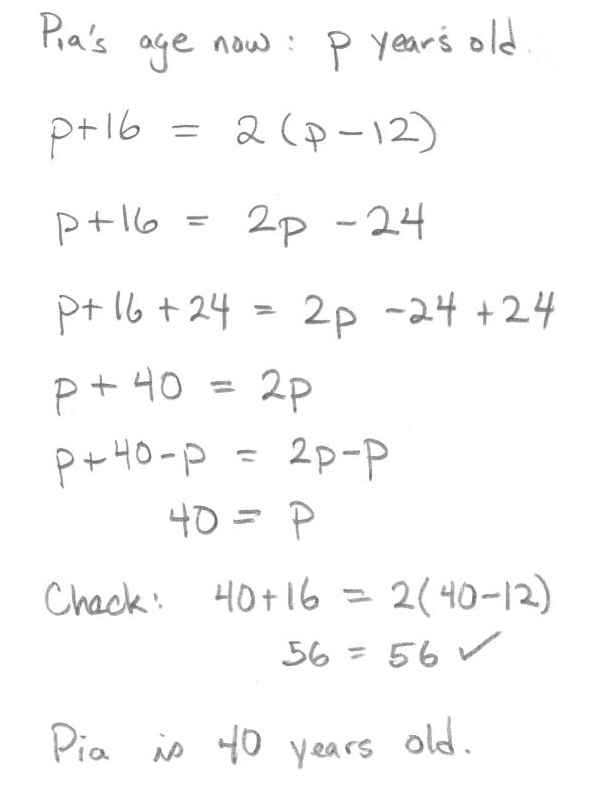 Pia's age now: p years old.
p+16 = 2(p-12)
p+16 = 2p -24
p+16+24 = 2p -24+24
p+40 = 2p
p+40-p = 2p-p
40 = p
Check: 40+16 = 2(40-12)
56 = 56 ✓
Pia is 40 years old.